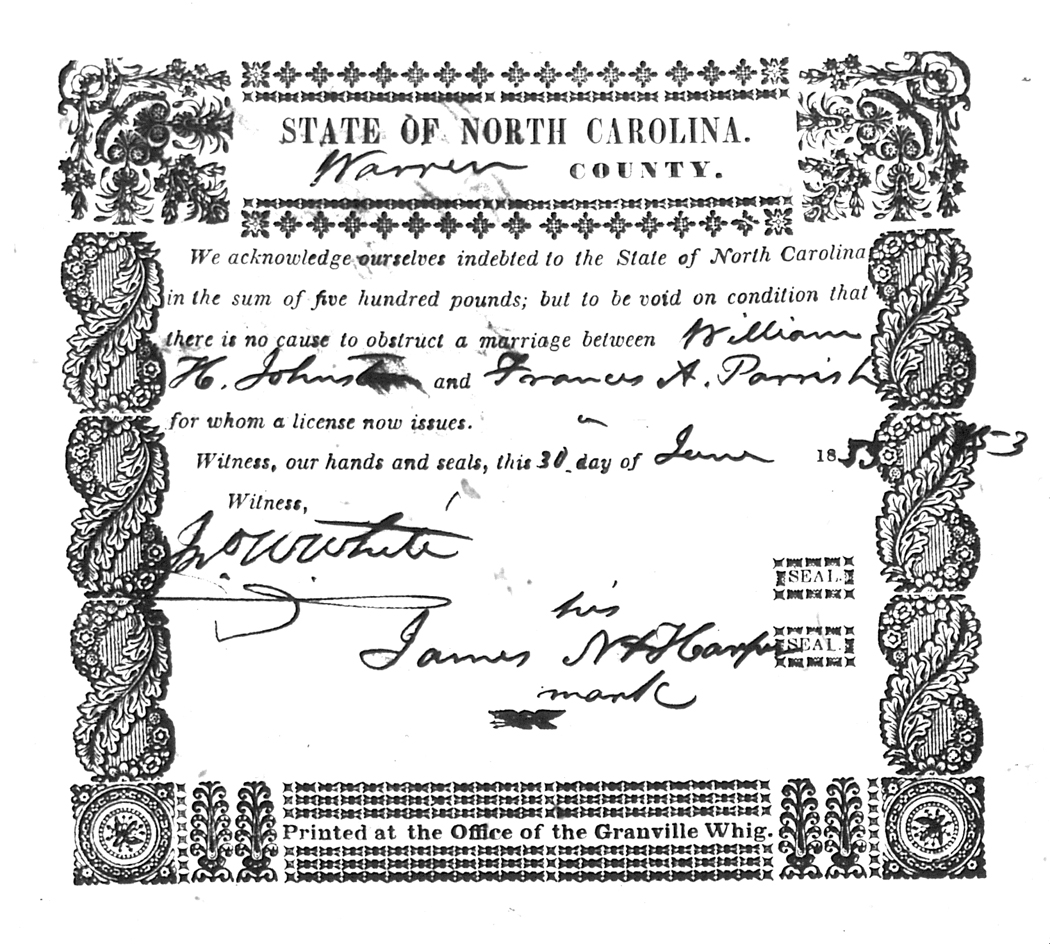 STATE OF NORTH CAROLINA.
Warren COUNTY.
We acknowledge ourselves indebted to the State of North Carolina
in the sum of five hundred pounds; but to be void on condition that
there is no cause to obstruct a marriage between William
H. Johnston and Frances A. Parrish
for whom a license now issues.
Witness, our hands and seals, this 30 day of June 1853
Witness,
Jno W White
SEAL.
his
James N X Harper SEAL.
mark
Printed at the Office of the Granville Whig.